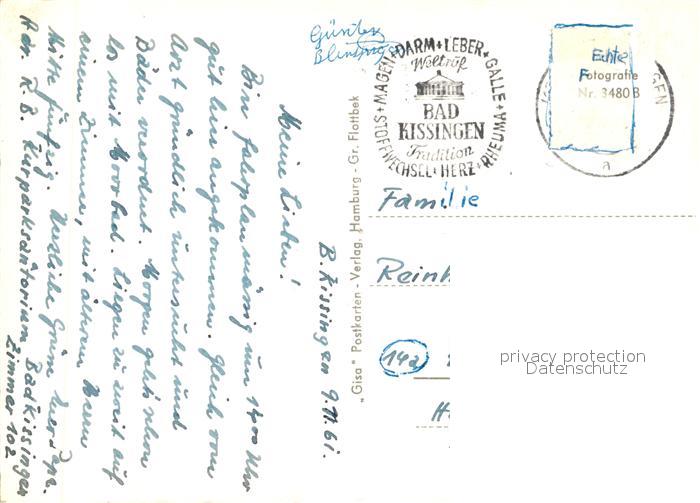 Günter
B. Kissingen 9.11.61.
Meine Lieben!
Bin fahrplanmässig um 14 00 Uhr
gut hier angekommen. Gleich vom
Arzt gründlich untersucht und
Bäder verordnet. Morgen geht's schon
los mit Moorbad. Liegen zu zweit auf
einem Zimmer, mit älterem Herrn
Mitte fünfzig. Herzliche Grüsse
Adr. K. B. Kurparksanatorium Bad Kissingen
Zimmer 102
"Gisa" Postkarten - Verlag, Hamburg - Gr. Flottbek
MAGEN+DARM+LEBER+GALLE+RHEUMA+HERZ+STOFFWECHSEL
Weltruf
BAD
KISSINGEN
Tradition
Echte
Fotografie
Nr. 3480 B
GEN
a
Familie
Rein
14a
privacy protection
Datenschutz